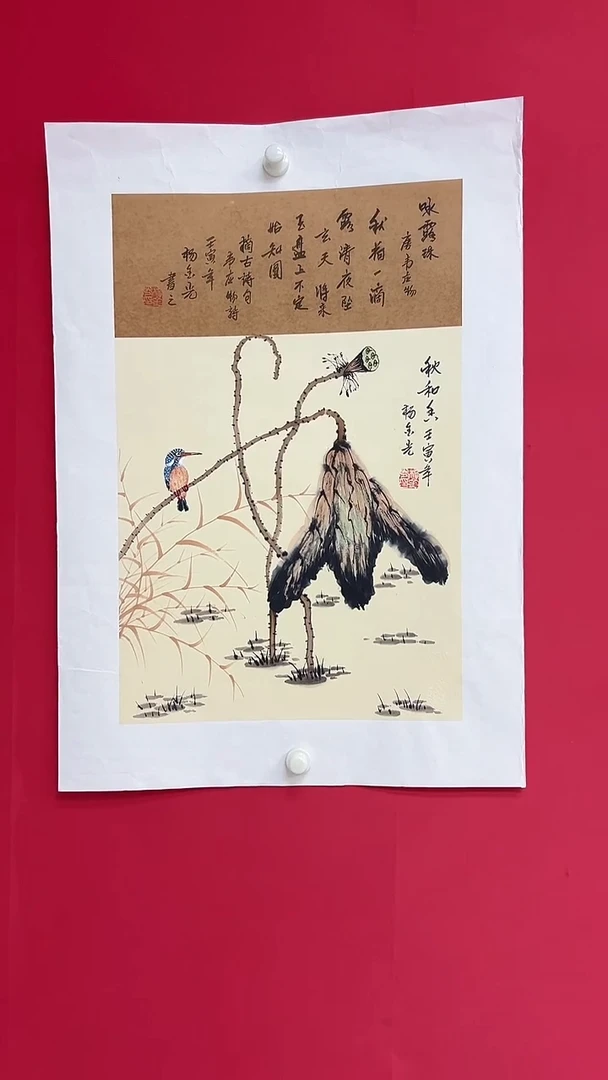 咏露珠
唐韦应物
秋荷一滴
露清夜坠
玄天 将来
玉盘上不定
始知圆
摘古诗句
韦应物诗
壬寅年
杨金光
书之
秋和念壬寅年
杨金光